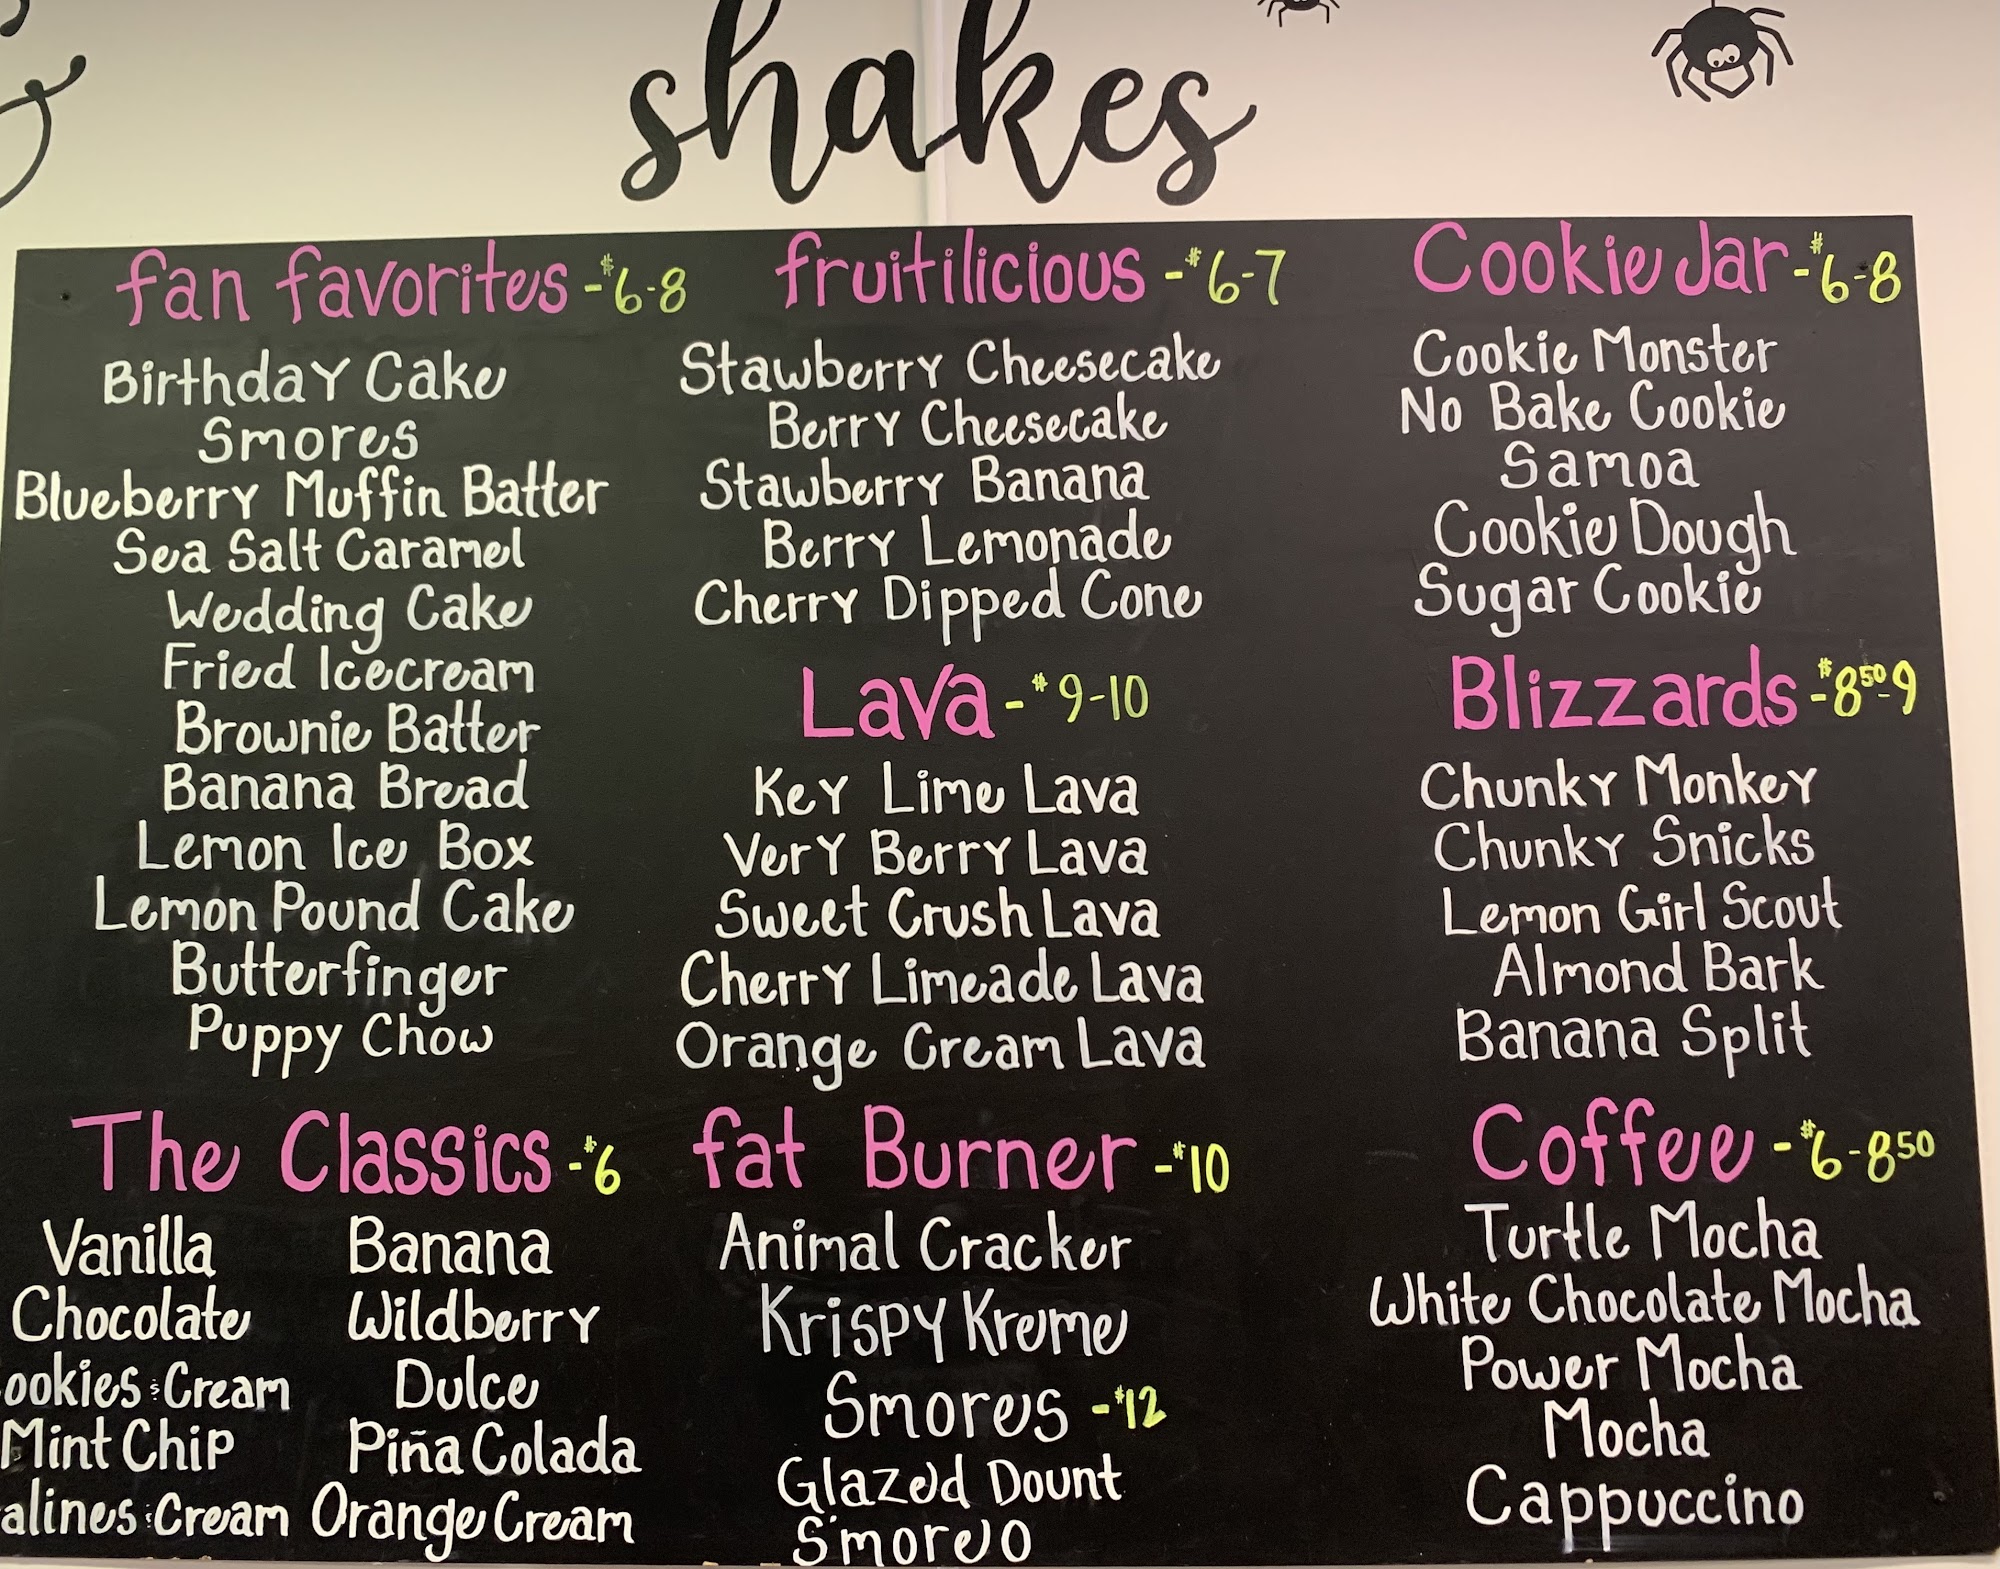 shakes
fan favorites -$6-8
Birthday Cake
Smores
Blueberry Muffin Batter
Sea Salt Caramel
Wedding Cake
Fried Icecream
Brownie Batter
Banana Bread
Lemon Ice Box
Lemon Pound Cake
Butterfinger
Puppy Chow
The Classics -$6
Vanilla
Chocolate
ookies & Cream
Mint Chip
alines & Cream
Banana
Wildberry
Dulce
Piña Colada
Orange Cream
fruitilicious -$6-7
Stawberry Cheesecake
Berry Cheesecake
Stawberry Banana
Berry Lemonade
Cherry Dipped Cone
Lava -$9-10
Key Lime Lava
Very Berry Lava
Sweet Crush Lava
Cherry Limeade Lava
Orange Cream Lava
fat Burner -$10
Animal Cracker
Krispy Kreme
Smores -$12
Glazed Dount
S'moreo
Cookie Jar -$6-8
Cookie Monster
No Bake Cookie
Samoa
Cookie Dough
Sugar Cookie
Blizzards -$8⁵⁰-9
Chunky Monkey
Chunky Snicks
Lemon Girl Scout
Almond Bark
Banana Split
Coffee -$6-8⁵⁰
Turtle Mocha
White Chocolate Mocha
Power Mocha
Mocha
Cappuccino